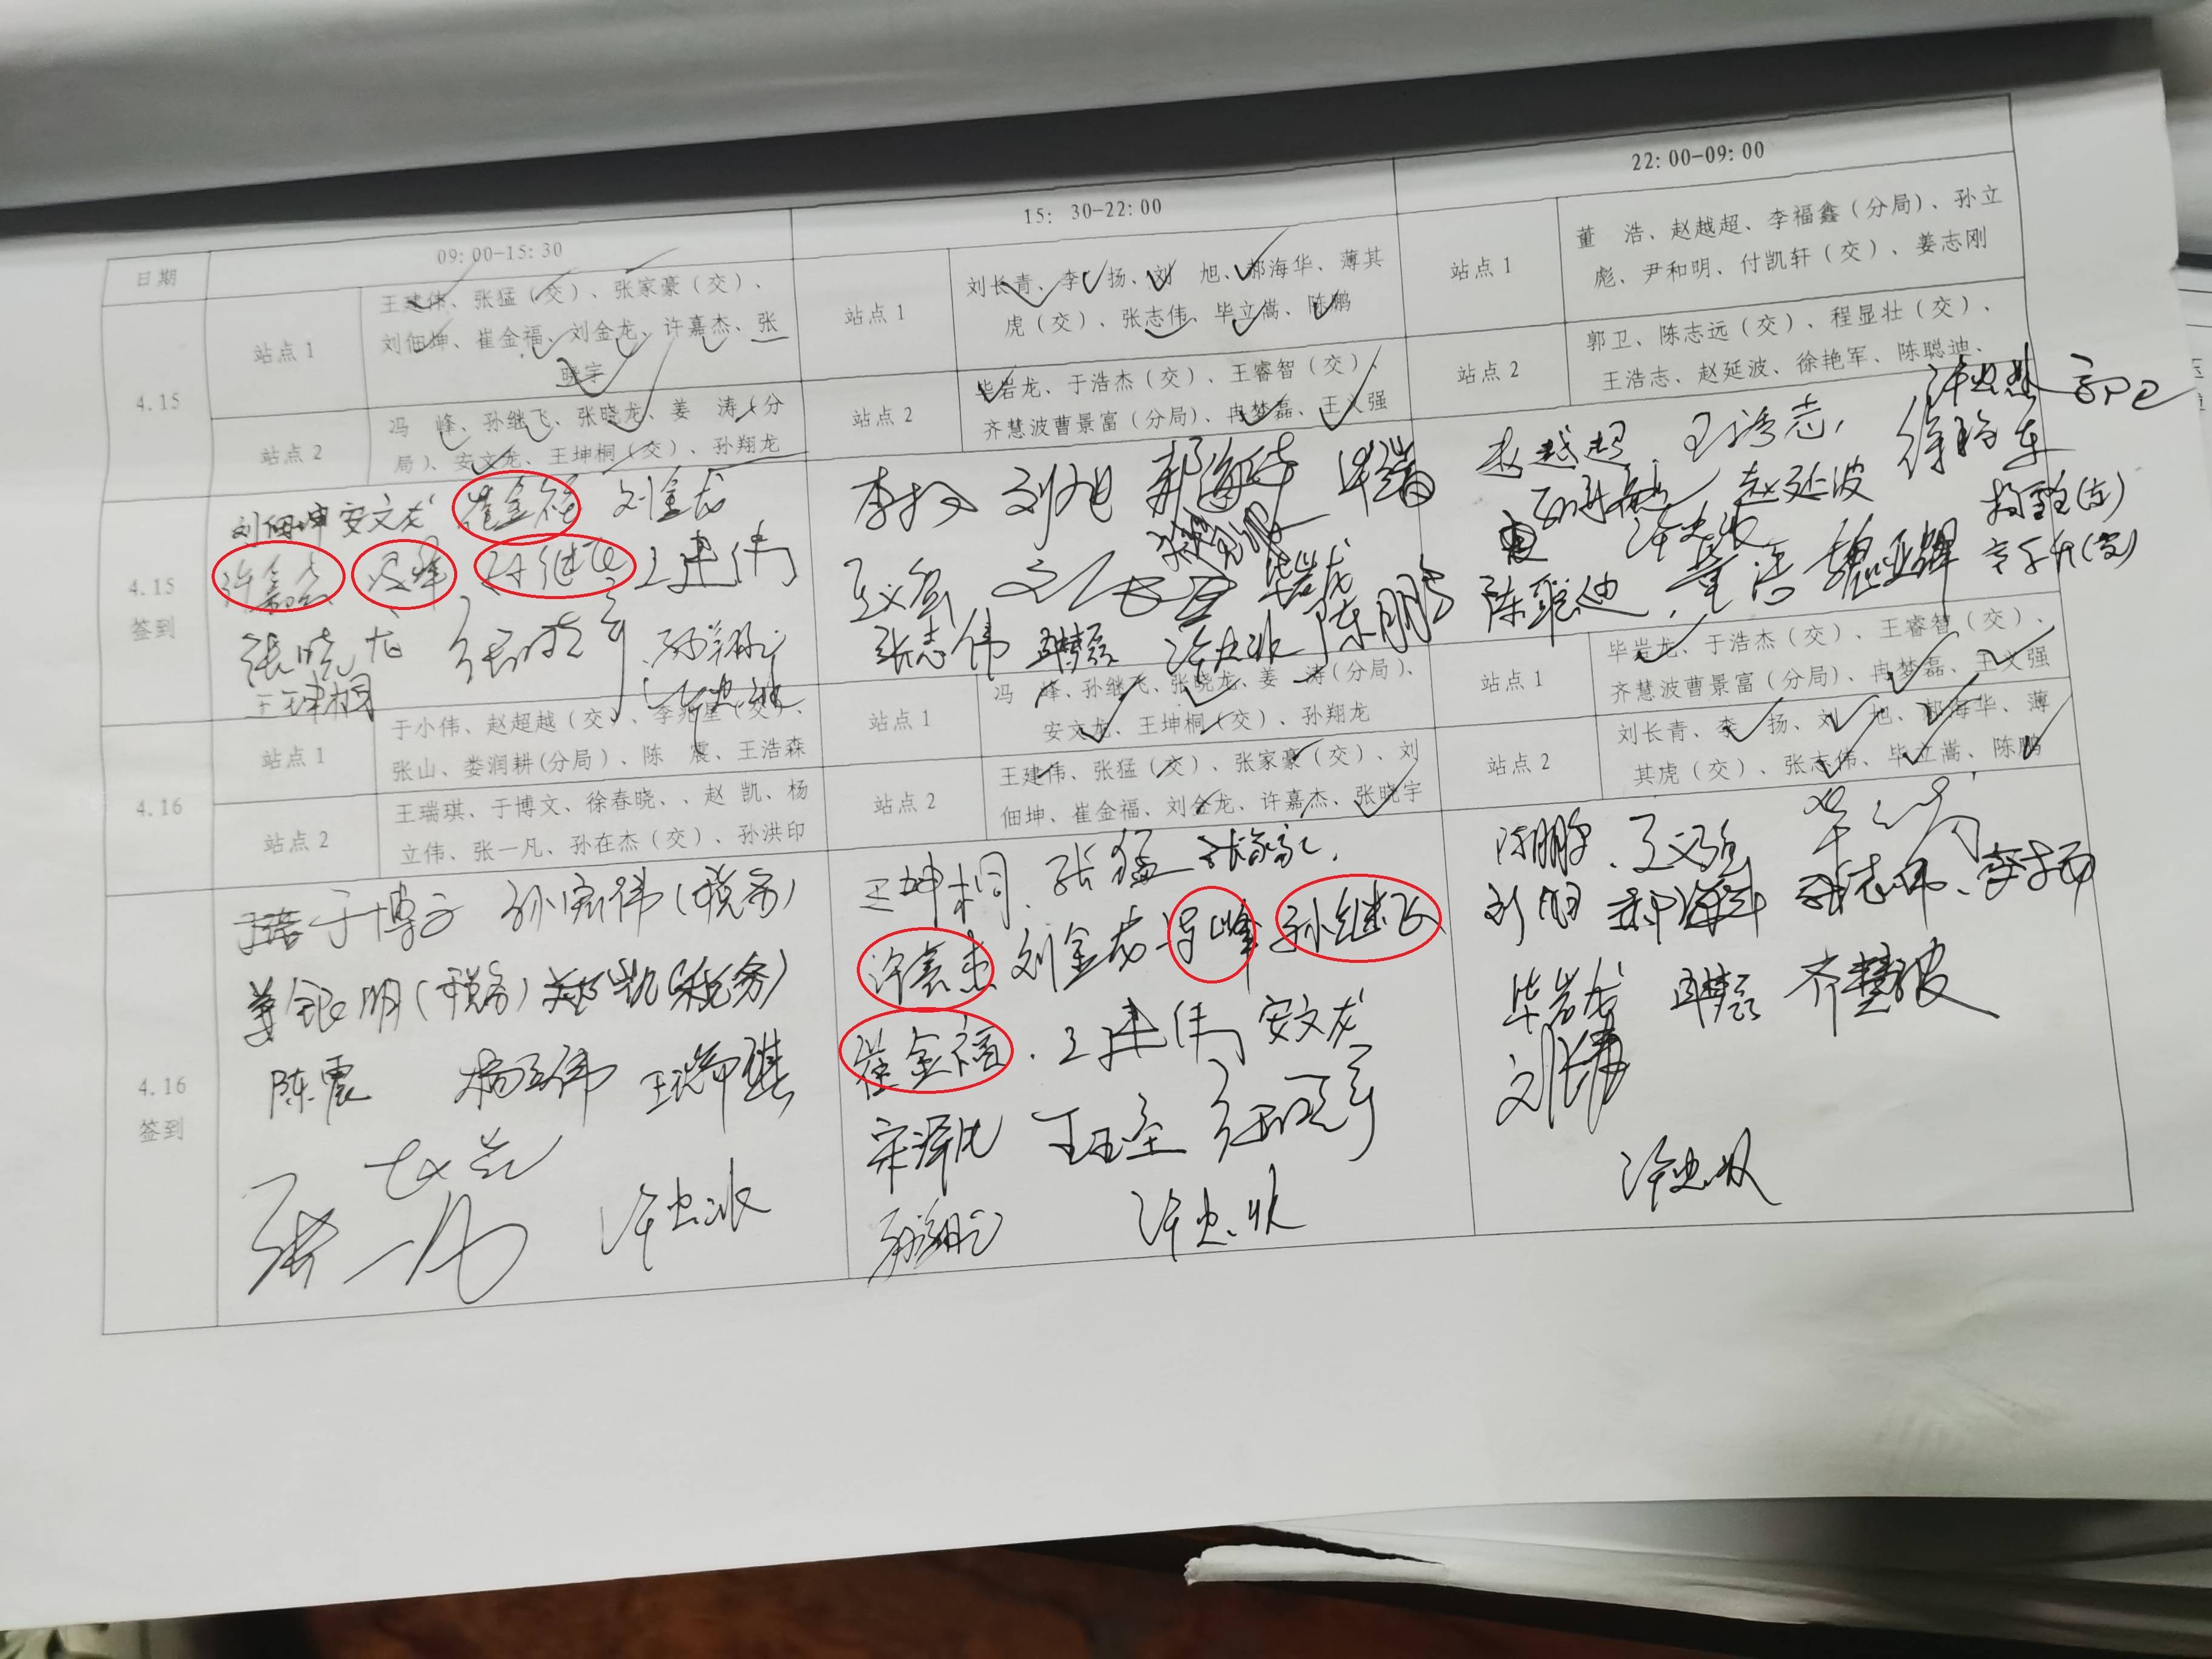 日期
09：00-15：30
15：30-22：00
22：00-09：00
4.15
站点1
王建伟、张猛（交）、张家豪（交）、
刘佃坤、崔金福、刘金龙、许嘉杰、张
晓宇
站点1
刘长青、李　扬、刘　旭、郝海华、薄其
虎（交）、张志伟、毕立嵩、陈鹏
站点1
董　浩、赵越超、李福鑫（分局）、孙立
彪、尹和明、付凯轩（交）、姜志刚
站点2
冯　峰、孙继飞、张晓龙、姜　涛（分
局）、安文龙、王坤桐（交）、孙翔龙
站点2
毕岩龙、于浩杰（交）、王睿智（交）、
齐慧波曹景富（分局）、冉梦磊、王义强
站点2
郭卫、陈志远（交）、程显壮（交）、
王浩志、赵延波、徐艳军、陈聪迪、
4.15
签到
刘佃坤 安文龙 崔金福 刘金龙
许嘉杰 冯峰 孙继飞 王建伟
张晓龙 张晓宇 孙翔龙
王坤桐
李扬 刘旭 郝海华
王义强 毕岩龙
张志伟 冉梦磊 陈鹏
赵越超 王浩志
赵延波
陈聪迪 董浩
4.16
站点1
于小伟、赵超越（交）、李兆星（交）、
张山、娄润耕(分局）、陈　震、王浩森
站点1
冯　峰、孙继飞、张晓龙、姜　涛（分局）、
安文龙、王坤桐（交）、孙翔龙
站点1
毕岩龙、于浩杰（交）、王睿智（交）、
齐慧波曹景富（分局）、冉梦磊、王义强
站点2
王瑞琪、于博文、徐春晓、、赵 凯、杨
立伟、张一凡、孙在杰（交）、孙洪印
站点2
王建伟、张猛（交）、张家豪（交）、刘
佃坤、崔金福、刘金龙、许嘉杰、张晓宇
站点2
刘长青、李　扬、刘　旭、郝海华、薄
其虎（交）、张志伟、毕立嵩、陈鹏
4.16
签到
于博文 （税务）
姜银明（税务）赵凯（税务）
陈震 杨立伟 王瑞琪
张一凡
王坤桐 张猛 张家豪
许嘉杰 刘金龙 冯峰 孙继飞
崔金福 王建伟 安文龙
张晓宇
孙翔龙
陈鹏 王义强
刘旭 郝海华 张志伟 李扬
毕岩龙 冉梦磊 齐慧波
刘长青